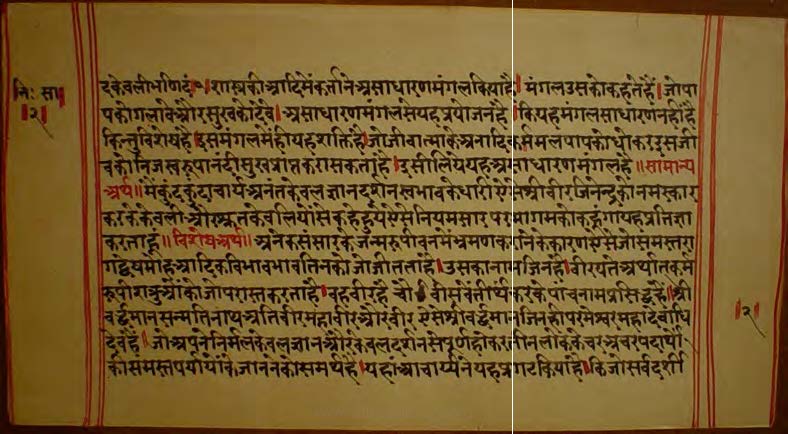 निः सा
॥२॥
दकेवलीभणिदं॥१॥शास्त्रकीआदिमेंकर्त्तानेअसाधारणमंगलकियाहै।मंगलउसकोकहतेहैं।जोपा
पकोगलावेऔरसुखकोदेवे।असाधारणमंगलसेयहप्रयोजनहै।कियहमंगलसाधारणनहींहै
किन्तुविशेषहै।इसमंगलमेंहीयहशक्तिहै।जोजीवात्माकेअनादिकर्ममलपापकोधोकरइसजी
वकोनिजस्वरूपानंदीसुखप्राप्तकरासकताहै।इसीलियेयहअसाधारणमंगलहै॥सामान्य
अर्थ॥मैंकुंदकुंदाचार्यअनंतकेवलज्ञानदर्शनस्वभावकेधारीऐसेश्रीवीरजिनेन्द्रकोनमस्कार
करकेकेवलीऔरश्रुतकेवलियोंसेकहेहुयेऐसेनियमसारपरमागमकोकहूंगायहप्रतिज्ञा
करताहूं॥विशेषअर्थ॥अनेकसंसारकेजन्मरूपीवनमेंभ्रमणकरानेकेकारणऐसेजोसमस्तरा
गद्वेषमोहआदिकविभावभावतिनकोजोजीतताहै।उसकानामजिनहै।वीरयतेअर्थात्कर्म
रूपीशत्रुओंकोजोपरास्तकरताहै।वहवीरहै चौ।वीसवेंतीर्थंकरकेपांचनामप्रसिद्धहैं।श्री
वर्द्धमानसन्मतिनाथअतिवीरमहावीरऔरवीर ऐसेश्रीवर्द्धमानजिनहीपरमेश्वरमहादेवाधि
देवहैं।जोअपनेनिर्मलकेवलज्ञानऔरकेवलदर्शनसेपूर्णहोकरतीनलोककेचरअचरपदार्थों
कीसमस्तपर्यायोंकेजाननेकोसमर्थहै।यहांआचार्य्यनेयहप्रगटकियाहै।किजोसर्वदर्शी
॥२॥